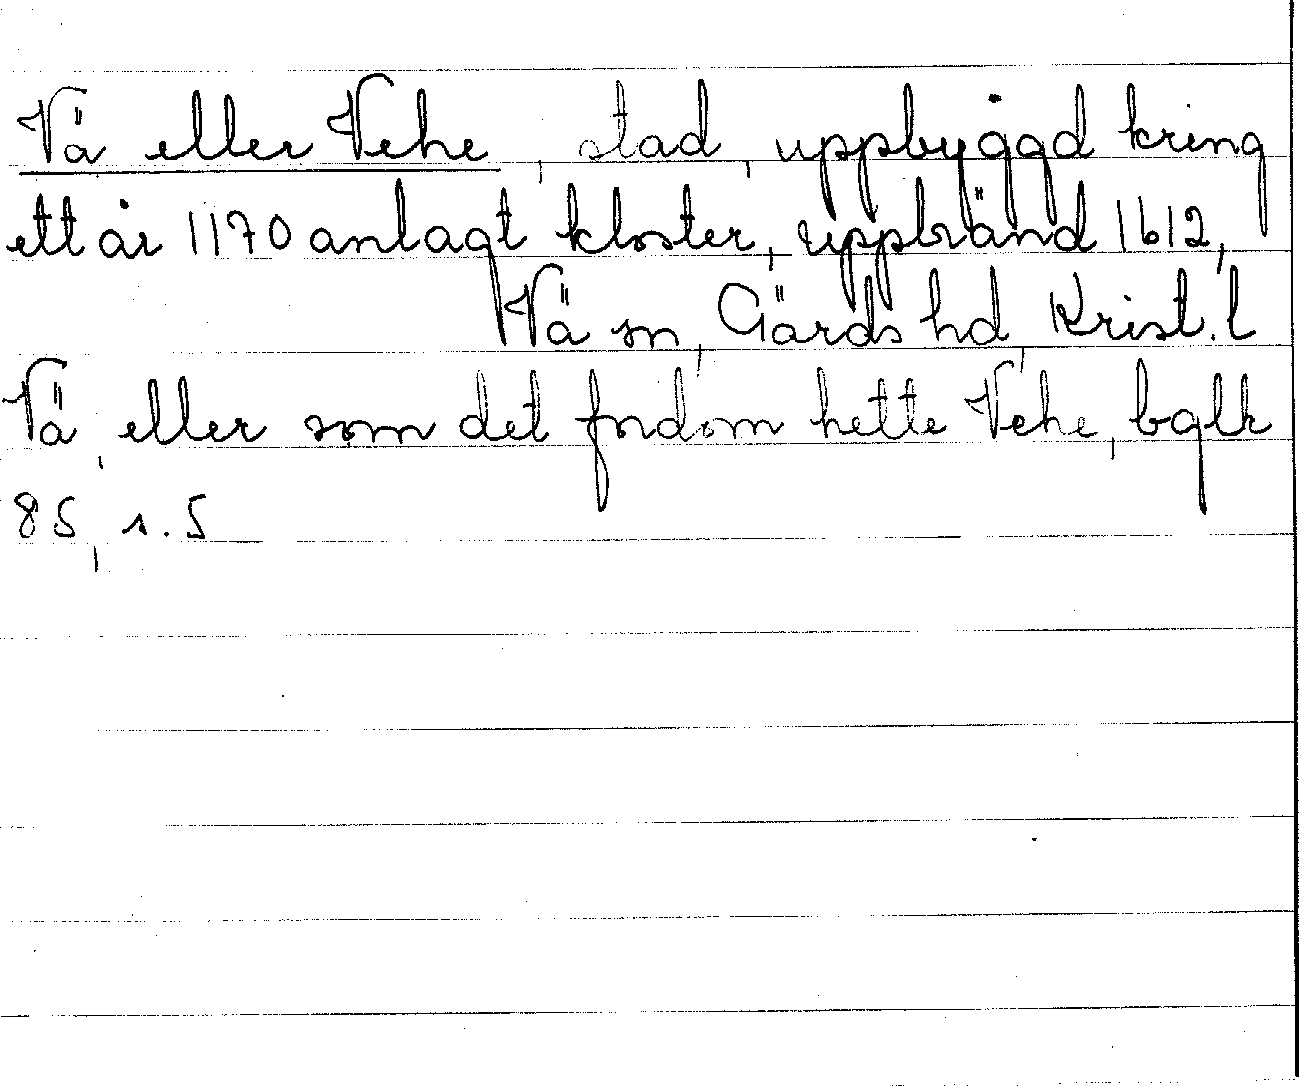 Vä eller Vehe, stad, uppbyggd kring
ett år 1170 anlagt kloster, uppbränd 1612,
Vä sn, Gärds hd, Krist.l
Vä, eller som det fordom hette Vehe, balk
85, s. 5